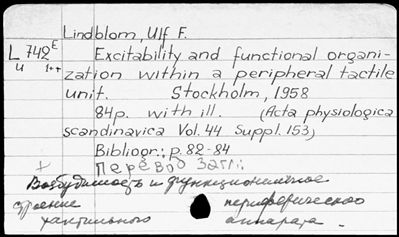 Lindblom, Ulf F.
L 742 E Excitability and functional organi-
4 1++ zation within a peripheral tactile
unit. Stockholm, 1958
84p. with ill. (Acta physiologica
scandinavica Vol. 44 Suppl. 153)
Bibliogr.: p. 82-84
+ Перевод загл.:
Возбудимость и функциональное
строение периферического
тактильного аппарата.